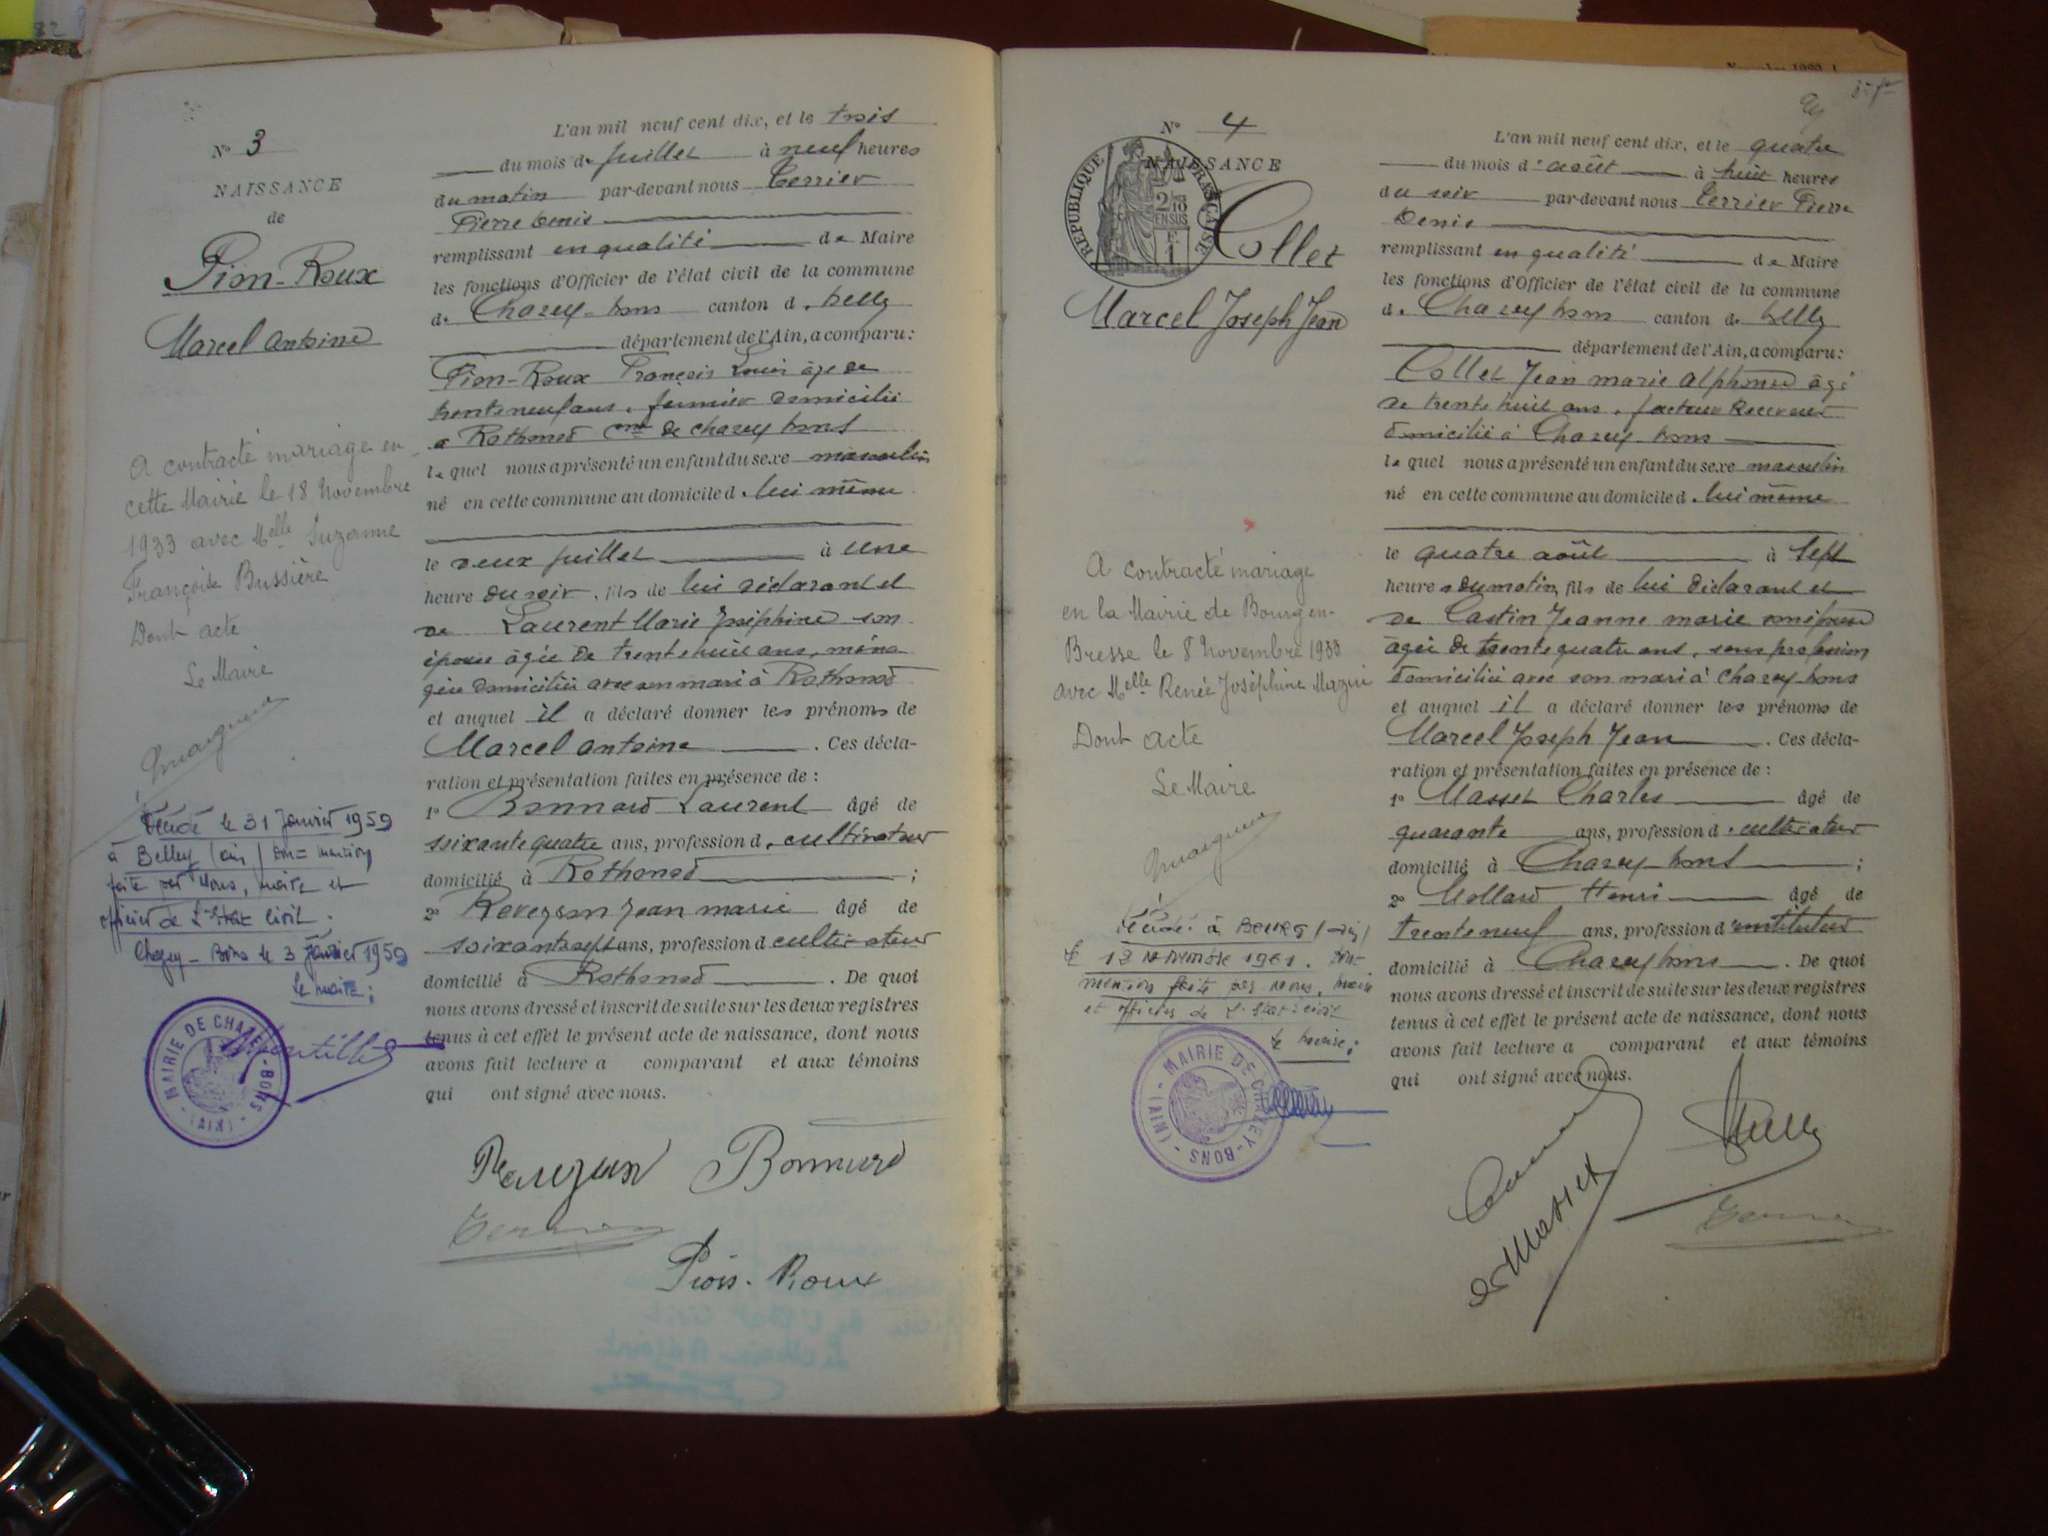 N° 3
NAISSANCE
de
Pion-Roux
Marcel Antoine
A contracté mariage en
cette Mairie le 18 Novembre
1933 avec Melle Suzanne
Françoise Bussière
Dont acte
Le Maire
Décédé le 31 Janvier 1959
à Belley (ain) Dont mention
faite par Nous, maire et
officier de L'Etat Civil.
Chazey-Bons le 3 Février 1959
Le maire :
MAIRIE DE CHAZEY-BONS (AIN)
L'an mil neuf cent dix, et le trois
du mois de Juillet à neuf heures
du matin par-devant nous Terrier
Pierre Denis
remplissant en qualité de Maire
les fonctions d'Officier de l'état civil de la commune
de Chazey-bons canton de belley
département de l'Ain, a comparu :
Pion-Roux François Louis âgé de
trente neuf ans, fermier domicilié
a Rothonod Cne de Chazey bons
lequel nous a présenté un enfant du sexe masculin
né en cette commune au domicile de lui même
le deux juillet à une
heure du soir, fils de lui déclarant et
de Laurent Marie Joséphine son
épouse âgée de trente huit ans, ména
gère domiciliée avec son mari à Rothonod
et auquel il a déclaré donner les prénoms de
Marcel Antoine. Ces décla-
ration et présentation faites en présence de :
1° Bonnard Laurent âgé de
soixante quatre ans, profession de cultivateur
domicilié à Rothonod ;
2° Reveyron Jean marie âgé de
soixante sept ans, profession d cultivateur
domicilié à Rothonod. De quoi
nous avons dressé et inscrit de suite sur les deux registres
tenus à cet effet le présent acte de naissance, dont nous
avons fait lecture a comparant et aux témoins
qui ont signé avec nous.
Bonnard
Pion-Roux
N° 4
NAISSANCE
RÉPUBLIQUE FRANÇAISE
2/10 EN SUS
Collet
Marcel Joseph Jean
A contracté mariage
en la Mairie de Bourg en-
Bresse le 8 Novembre 1933
avec Melle Renée Joséphine Mazui
Dont acte
Le Maire
Décédé à BOURG (Ain)
le 13 novembre 1961. Dont
mention faite par nous, maire
et officier de l'état civil
Le maire :
MAIRIE DE CHAZEY-BONS (AIN)
L'an mil neuf cent dix, et le quatre
du mois d'août à huit heures
du soir par-devant nous Terrier Pierre
Denis
remplissant en qualité de Maire
les fonctions d'Officier de l'état civil de la commune
de Chazey bons canton de belley
département de l'Ain, a comparu :
Collet Jean marie Alphonse âgé
de trente huit ans, facteur Receveur
domicilié à Chazey-bons
lequel nous a présenté un enfant du sexe masculin
né en cette commune au domicile de lui même
le quatre août à sept
heures du matin, fils de lui déclarant et
de Castin Jeanne marie son épouse
âgée de trente quatre ans, sans profession
domiciliée avec son mari à Chazey-bons
et auquel il a déclaré donner les prénoms de
Marcel Joseph Jean. Ces décla-
ration et présentation faites en présence de :
1° Masset Charles âgé de
quarante ans, profession de cultivateur
domicilié à Chazey bons ;
2° Mollard Henri âgé de
trente neuf ans, profession d'instituteur
domicilié à Chazey bons. De quoi
nous avons dressé et inscrit de suite sur les deux registres
tenus à cet effet le présent acte de naissance, dont nous
avons fait lecture a comparant et aux témoins
qui ont signé avec nous.
Masset